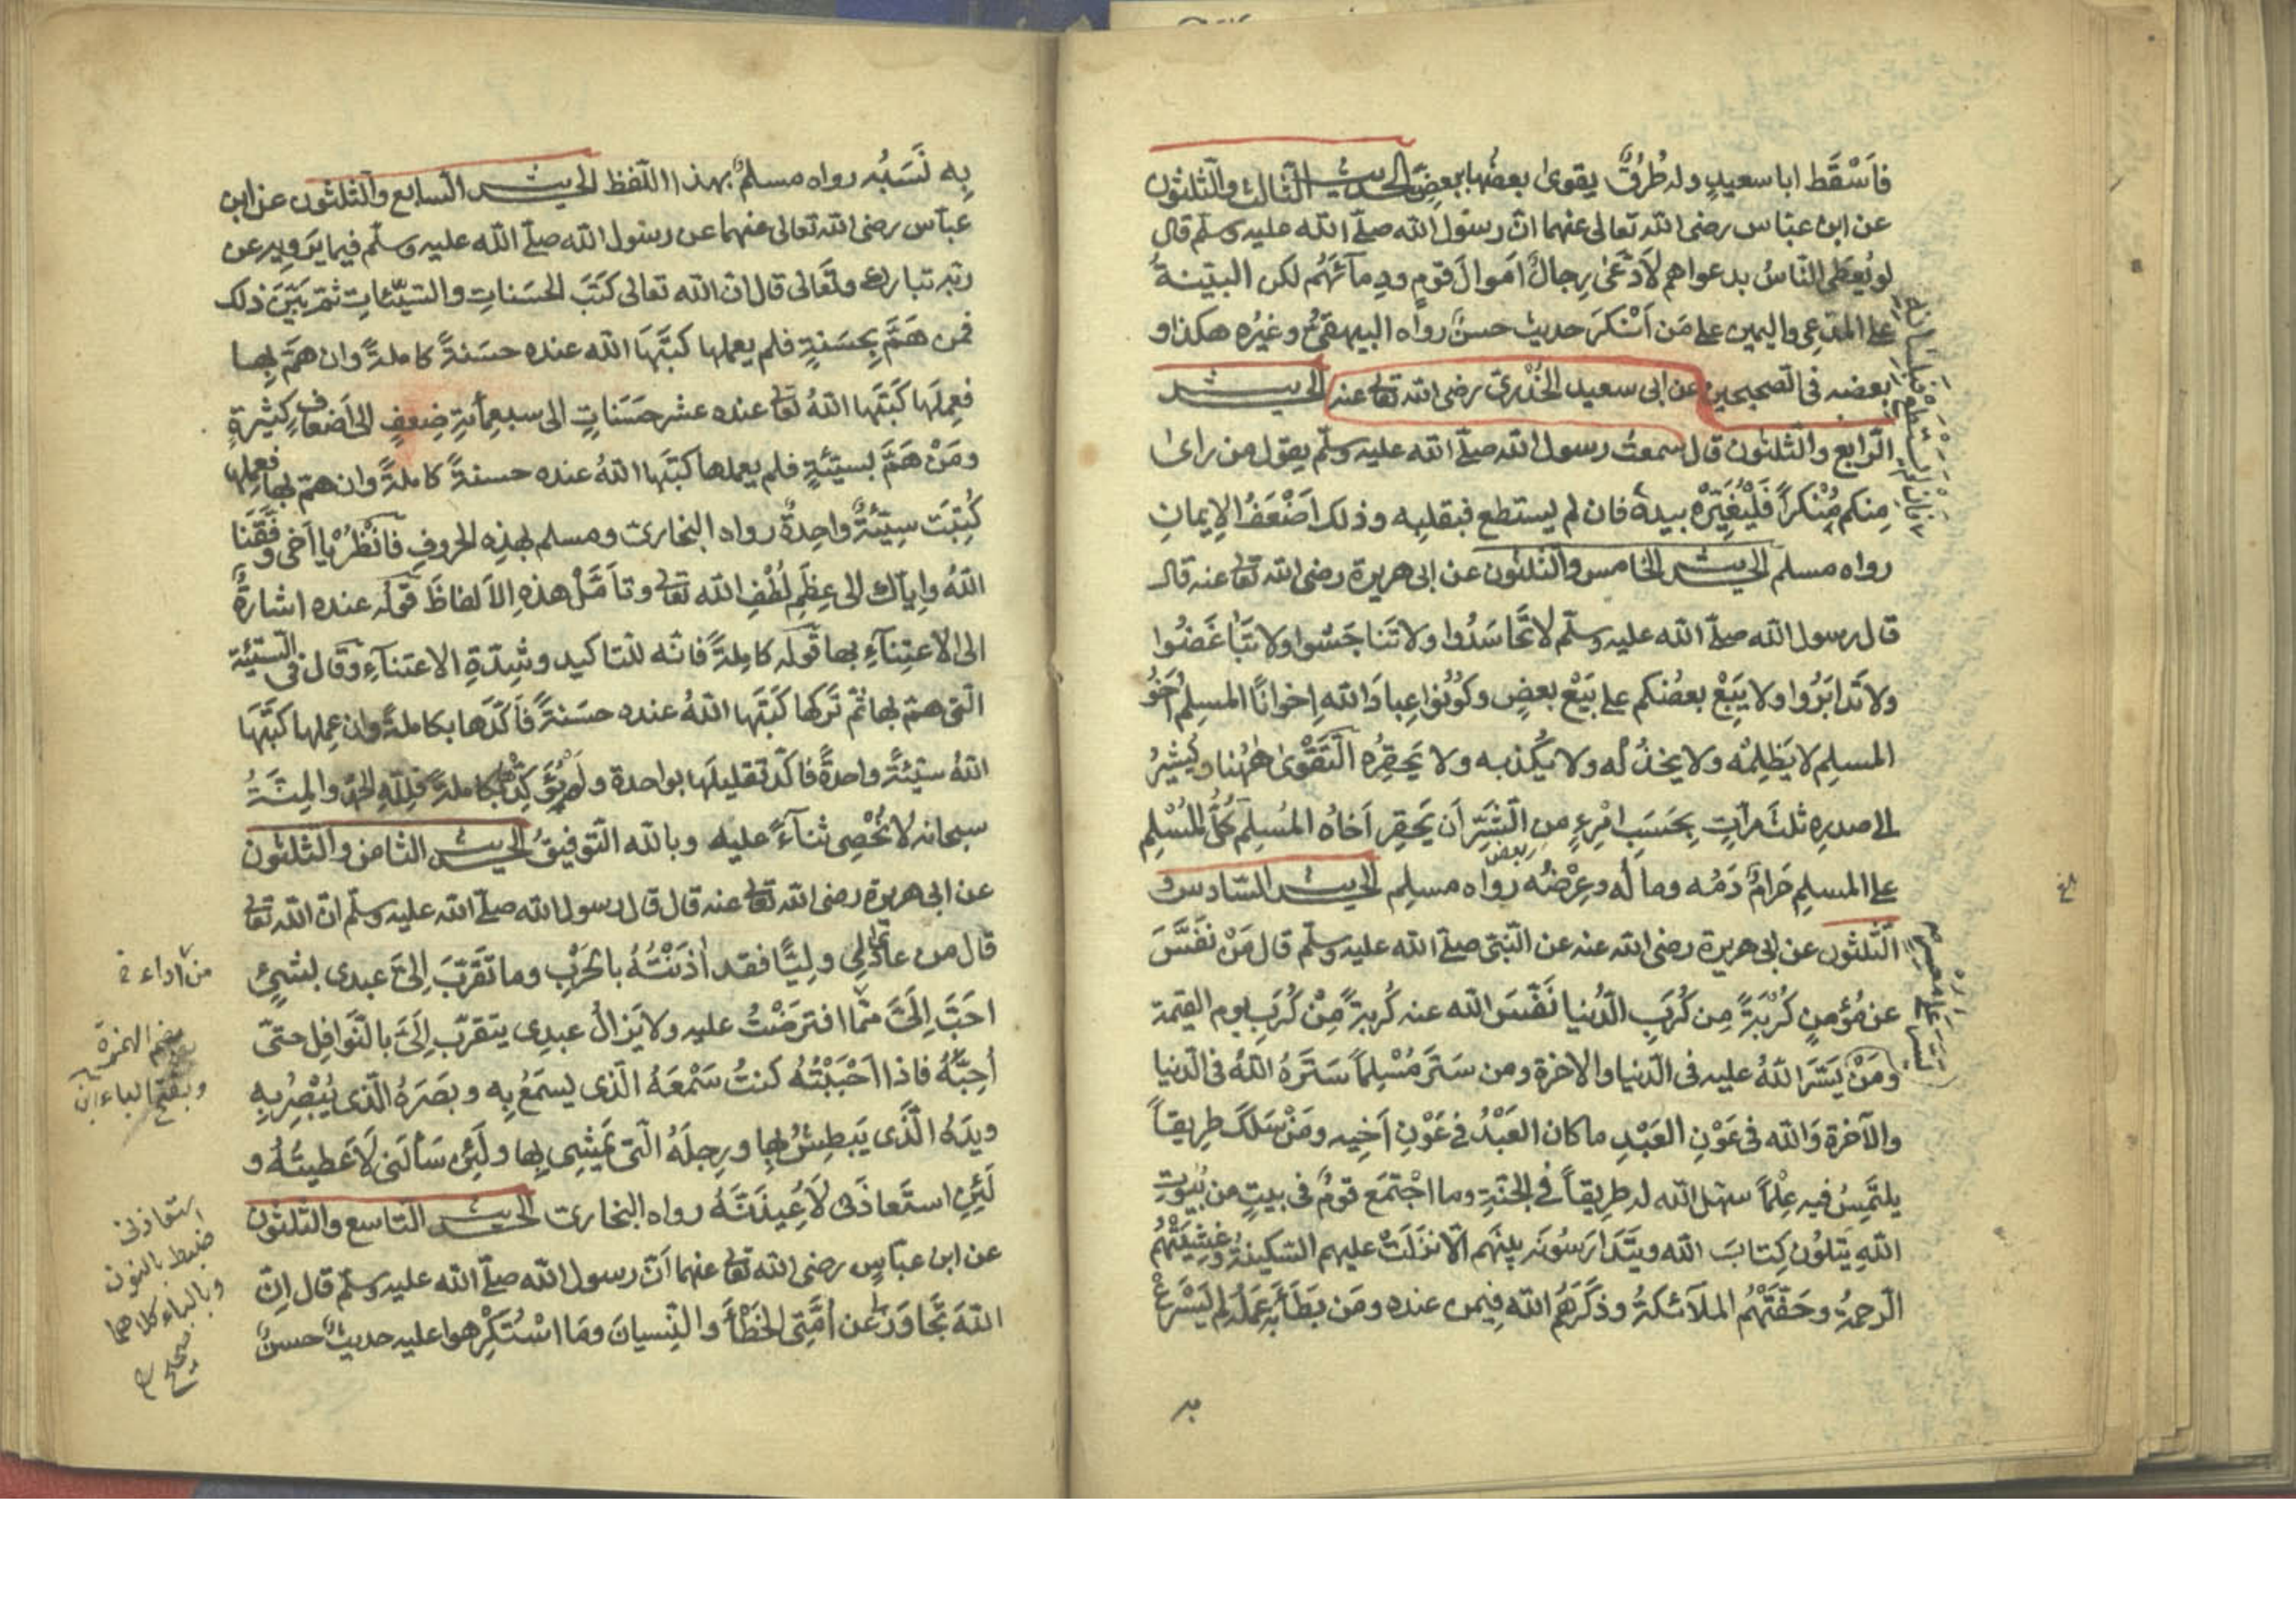 فَاَسْقَط ابا سعيدٍ وله طُرُقٌ يقوىٰ بعضُها ببعضٍ الحديث الثالث والثلثون
عن ابن عباس رضى الله تعالى عنهما انّ رسول الله صلّى الله عليه وسلم قال
لو يُعطَى النّاسُ بدعواهم لَادّعىٰ رِجالٌ اَموالَ قومٍ ودِمآئَهُم لكن البيّنةُ
على المدّعِى واليمين على مَن اَنْكَرَ حديث حسنٌ رواه البيهقىُّ وغيرُه هكذا و
بعضه فى الصحيحين عن ابى سعيد الخُدْرىّ رضى الله تعالى عنه الحديث
الرّابع والثّلثون قال سمعتُ رسول الله صلّى الله عليه وسلّم يقول من راىٰ
مِنكم مُنْكراً فَلْيُغَيِّرْهُ بيدهٖ فان لم يستطع فبقلبِه وذلك اَضْعَفُ الاِيمانِ
رواه مسلم الحديث الخامس والثلثون عن ابى هريرة رضى الله تعالى عنه قال
قال رسول الله صلّى الله عليه وسلّم لا تَحاسَدُوا ولا تَناجَشُوا ولا تَبَاغَضُوا
ولا تَدابَرُوا ولا يَبِعْ بعضُكم على بَيْع بعضٍ وكُونُوا عِبادَ الله اِخوانًا المسلِمُ اَخُو
المسلِمِ لا يَظْلِمُه ولا يخذُلُه ولا يَكْذِبه ولا يَحقِرُه اَلتَّقْوىٰ هٰهُنا ويُشِيْرُ
الى صدرِهِ ثلٰثَ مرّاتٍ بِحَسَبِ امْرِءٍ من الشَّرِّ اَن يَحقِر اَخاهُ المُسلِمَ كُلُّ المُسْلِمِ
على المسلِمِ حَرامٌ دَمُه ومالُه وعِرْضُه رواه مسلِم الحديث السّادس و
الثّلثون عن ابى هريرة رضى الله عنه عن النّبىّ صلّى الله عليه وسلّم قال مَنْ نَفَّسَ
عن مُؤمِنٍ كُرْبَةً مِن كُرَبِ الدُّنيا نَفَّسَ الله عنه كُربةً مِنْ كُرَبِ يوم القيمة
ومَنْ يَسَّرَ اللهُ عليه فى الدّنيا والاخرة ومن سَتَرَ مُسْلِماً سَتَرَهُ اللهُ فى الدّنيا
والآخرة وَالله فى عَوْنِ العَبْدِ ما كان العَبْدُ فى عَوْنِ اَخِيه ومَنْ سَلَكَ طرِيقاً
يلتَمِسُ فيه عِلْماً سهّل الله له طرِيقاً فى الجنّةِ وما اجْتَمَع قومٌ فى بيتٍ من بُيُوتِ
اللهِ يَتلُون كِتابَ الله ويتَدارَسُونَه بينَهم اِلّا نَزَلَتْ عليهم السّكينةُ وغَشِيَتْهُمُ
الرّحمةُ وحَفَّتْهُم الملآئكةُ وذكَرَهُم الله فِيمن عنده ومَن بَطَّأَ به عَمَلُه لم يُسْرِعْ
به
بِهٖ نَسَبُه رواه مسلمٌ بهذا اللّفظ الحديث السابع والثلثون عن ابن
عبّاس رضى الله تعالى عنهما عن رسول الله صلّى الله عليه وسلّم فيما يَروِيه عن
ربّه تبارك وتَعالى قال انّ الله تعالى كَتَبَ الحَسَناتِ والسّيّئاتِ ثمّ بَيَّنَ ذلك
فمن هَمَّ بِحَسَنةٍ فلم يعملها كَتَبَهَا الله عنده حسَنةً كاملةً وان همّ بِها
فعمِلَها كَتَبَها اللهُ تعالى عنده عشر حَسَناتٍ الى سبعِمأئةِ ضِعفٍ الى اَضعافٍ كثيرةٍ
ومَنْ هَمَّ بسيّئةٍ فلم يعملها كتَبَها اللهُ عنده حسنةً كاملةً وان همّ بها فعملها
كُتِبَت سيّئةٌ واحِدةٌ رواه البخارىّ ومسلم بهذِهِ الحروفِ فَانْظُرْ يا اَخى وفّقَنا
اللهُ واِيّاك الى عِظَمِ لُطْفِ الله تعالى وتاَمَّلْ هذِهِ الاَلفاظَ قوله عنده اشارةٌ
الى الاعتِنآءِ بها قوله كامِلةً فانّه للتاكيد وشِدّةِ الاعتنآءِ وقال فى السّيّئة
الّتى همّ بها ثُمّ تَركها كَتَبَها اللهُ عنده حسَنةً فَاَكَّدَها بكاملةً وان عمِلها كتَبَهَا
اللهُ سيّئةً واحدةً فاكّد تقليلَها بواحدة ولم يُؤَكِّدْها بكاملةً فلِلّهِ الحمدُ والمِنّةُ
سبحانه لا نُحْصِى ثنآءً عليه وبالله التّوفيقُ الحديث الثامن والثلثون
عن ابى هريرة رضى الله تعالى عنه قال قال رسول الله صلّى الله عليه وسلّم انّ الله تعالى
قال من عادٰى لِى وليًّا فقد اٰذَنْتُهُ بالحَرْبِ وما تَقَرَّبَ اِلىَّ عبدى بشَىْءٍ
احَبَّ اِلَىَّ ممّا افترضْتُ عليه ولا يَزالُ عبدِى يتقرّب اِلَىَّ بالنَّوافِل حتّى
اُحِبَّهُ فاذا اَحْبَبْتُه كنتُ سَمْعَهُ الّذى يسمَعُ بِه وبصَرَهُ الّذى يُبْصِرُ بِه
ويدَهُ الَّذى يَبطِشُ بها ورِجلَهُ الّتى يَمْشِى بِها ولَئِن سَاَلَنى لَاُعطيَنَّهُ و
لَئِنِ استَعاذَنى لَاُعِيذَنَّهُ رواه البخارىّ الحديث التاسع والثلثون
عن ابن عبّاسٍ رضى الله تعالى عنهما اَنّ رسول الله صلّى الله عليه وسلّم قال اِنّ
اللهَ تَجَاوَزَ عن اُمَّتِى الخَطَأَ والنِّسيانَ وَمَا اسْتُكْرِهوا عليه حديثٌ حسنٌ
من اداء
بضم الهمزة
وبفتح الباء
استعاذنى
ضبط بالنون
وبالباء كلاهما
صحيح